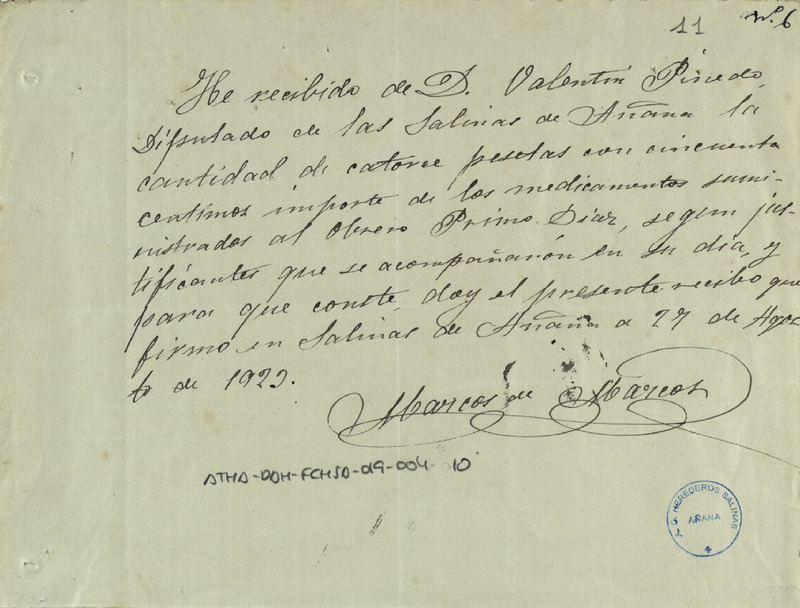 11
Nº. 6
He recibido de D. Valentín Pinedo,
Diputado de las Salinas de Añana la
cantidad de catorce pesetas con cincuenta
centimos importe de los medicamentos sumi-
nistrados al obrero Primo Díaz, segun jus-
tificantes que se acompañarón en su día, y
para que conste, doy el presente recibo que
firmo en Salinas de Añana a 27 de Agos-
to de 1923.
Marcos de Marcos
ATHA-DAH-FCHSA-019-004-10
HEREDEROS SALINAS
AÑANA